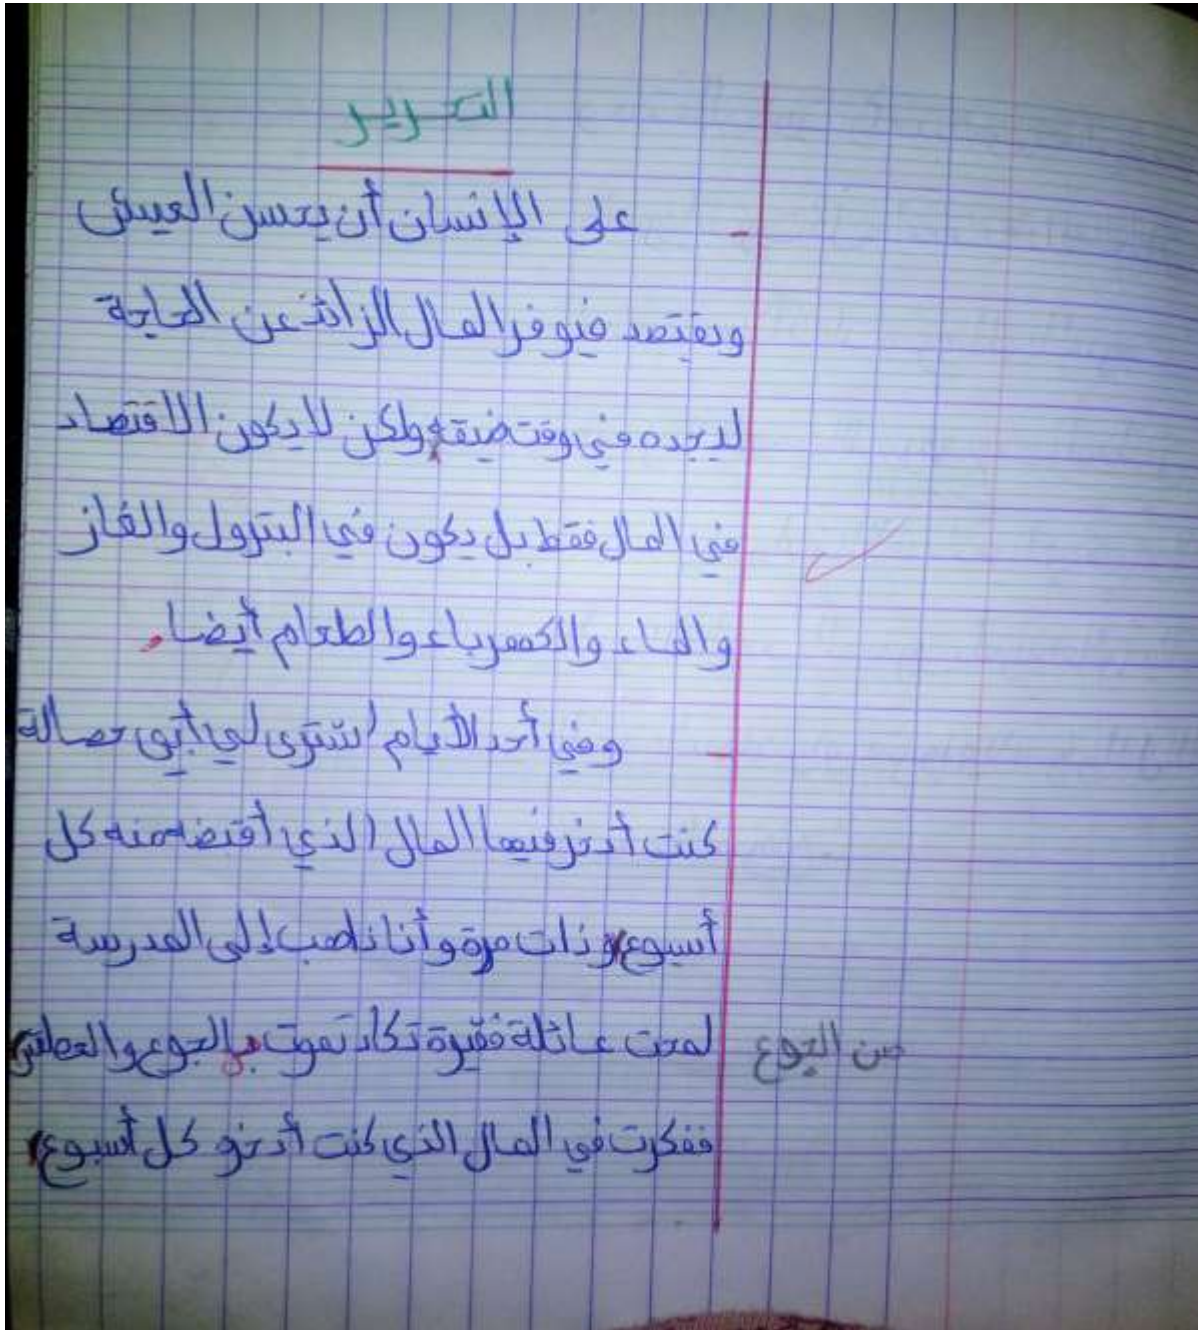 التحرير
على الإنسان أن يحسن العيش
ويقتصد فيوفر المال الزائد عن الحاجة
ليجده في وقت ضيقه ولكن لا يكون الاقتصاد
في المال فقط بل يكون في البترول والغاز
والماء والكهرباء والطعام أيضا.
وفي أحد الأيام اشترى لي أبي حصالة
كنت أدخر فيها المال الذي أقتضه منه كل
أسبوع وذات مرة وأنا ذاهب إلى المدرسة
لمحت عائلة فقيرة تكاد تموت بالجوع والعطش
من الجوع
ففكرت في المال الذي كنت أدخر كل أسبوع